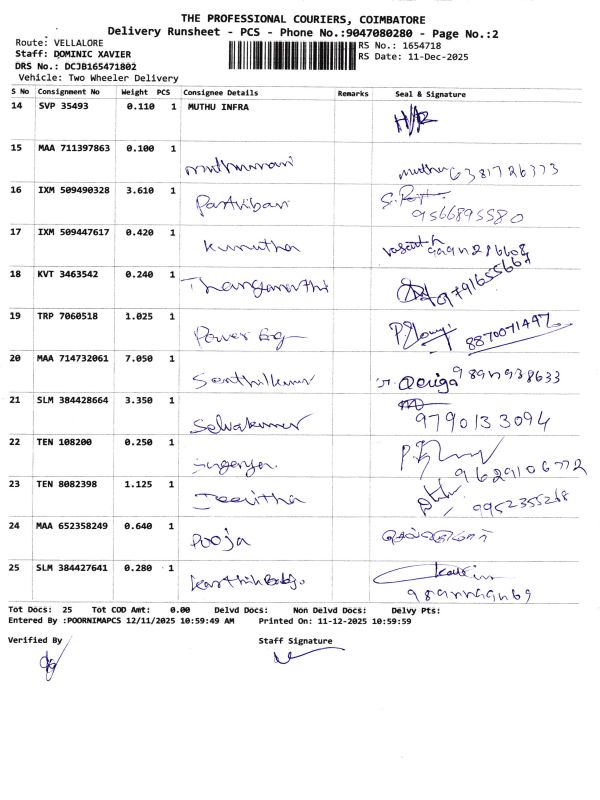 THE PROFESSIONAL COURIERS, COIMBATORE
Delivery Runsheet - PCS - Phone No.:9047080280 - Page No.:2
Route: VELLALORE
Staff: DOMINIC XAVIER
DRS No.: DCJB165471802
Vehicle: Two Wheeler Delivery
RS No.: 1654718
RS Date: 11-Dec-2025
S No Consignment No Weight PCS Consignee Details Remarks Seal & Signature
14 SVP 35493 0.110 1 MUTHU INFRA
15 MAA 711397863 0.100 1
muthumari muthu 6381726373
16 IXM 509490328 3.610 1
Parthiban 9566895580
17 IXM 509447617 0.420 1
Kumutha
18 KVT 3463542 0.240 1
Thangamathi 9791655667
19 TRP 7060518 1.025 1
Power 8870071497
20 MAA 714732061 7.050 1
Senthilkumar
21 SLM 384428664 3.350 1
Selvakumar 9790133094
22 TEN 108200 0.250 1
9629106772
23 TEN 8082398 1.125 1
Jeevitha 9952355268
24 MAA 652358249 0.640 1
Pooja
25 SLM 384427641 0.280 1
Tot Docs: 25 Tot COD Amt: 0.00 Delvd Docs: Non Delvd Docs: Delvy Pts:
Entered By :POORNIMAPCS 12/11/2025 10:59:49 AM Printed On: 11-12-2025 10:59:59
Verified By Staff Signature